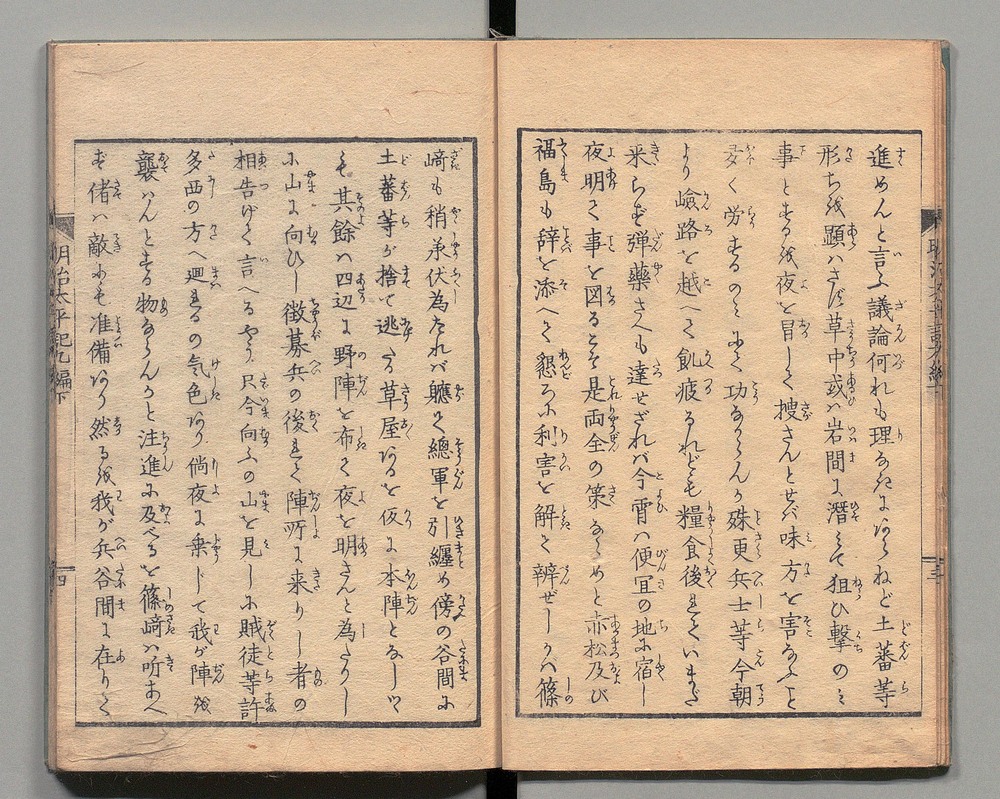 進めんと言ふ議論何れも理なきにあらねど土蕃等
形ちを顕ハさば草中或ハ岩間に潜ミて狙ひ撃のミ
事とするを夜を冒して捜さんとせバ味方を害なふこと
多く労するのミにて功なからんか殊更兵士等今朝
より嶮路を越へて飢疲るれども糧食後れていまだ
来らず弾薬さへも達せざれバ今宵ハ便宜の地に宿し
夜明て事を図るこそ是両全の策ならめと赤松及び
福島も辞を添へて懇ろに利害を解て辨ぜしかバ篠
崎も稍承伏為たれバ軈て総軍を引纏め傍の谷間に
土蕃等が捨て逃たる草屋あるを仮に本陣となしつ
も其餘ハ四辺に野陣を布て夜を明さんと為たりし
に山に向ひし徴募兵の後れて陣所に来りし者の
相告げて言へるやう只今向ふの山を見しに賊徒等許
多西の方へ廻るの気色あり倘夜に乗じて我が陣を
襲ハんとする物ならんかと注進に及べるを篠崎ハ听あへ
ず偖ハ敵にも准備あり然るを我が兵谷間に在りて
明治太平記九編下
四
三